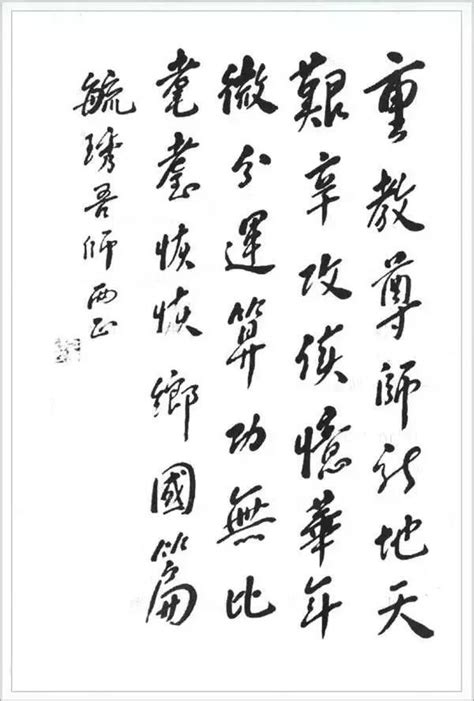 重教尊師新地天
艱辛攻读憶華年
微分運算功無比
耄耋恢恢鄉國篇
毓琇吾師两正